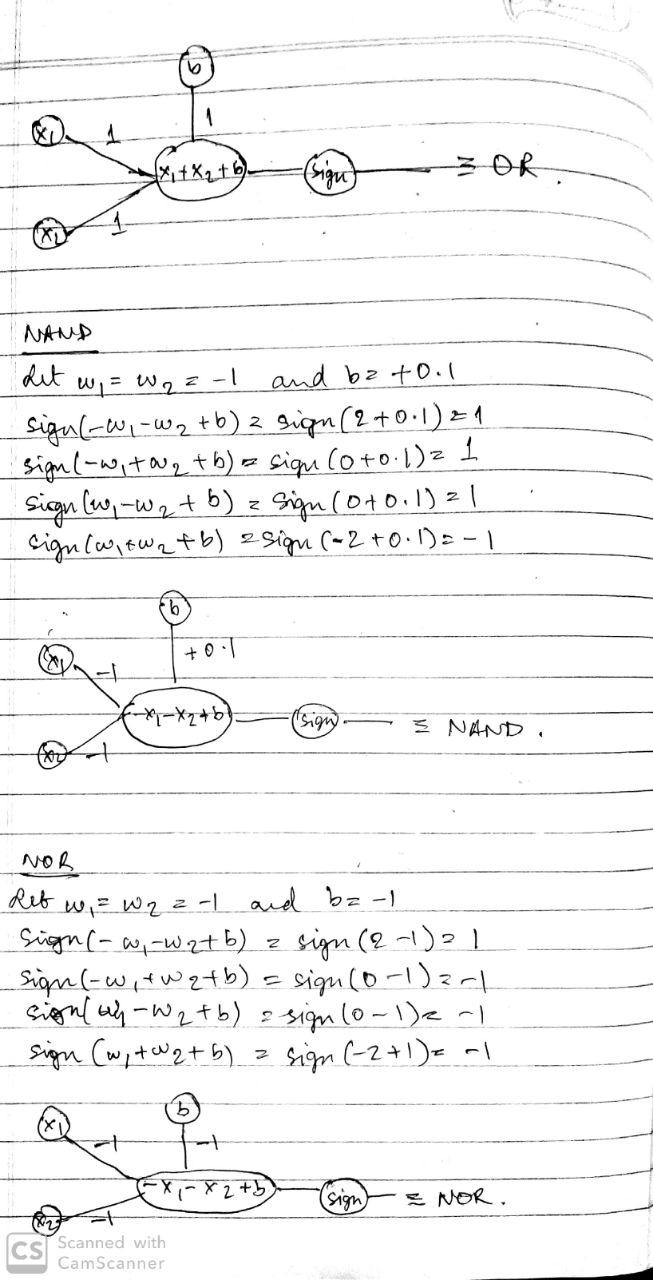 b
x₁ 1 1
x₁+x₂+b sign ≡ OR.
x₂ 1
NAND
Let w₁ = w₂ = -1 and b = +0.1
sign(-w₁-w₂+b) = sign(2+0.1) = 1
sign(-w₁+w₂+b) = sign(0+0.1) = 1
sign(w₁-w₂+b) = sign(0+0.1) = 1
sign(w₁+w₂+b) = sign(-2+0.1) = -1
b
x₁ -1 +0.1
-x₁-x₂+b sign ≡ NAND.
x₂ -1
NOR
Let w₁ = w₂ = -1 and b = -1
sign(-w₁-w₂+b) = sign(2-1) = 1
sign(-w₁+w₂+b) = sign(0-1) = -1
sign(w₁-w₂+b) = sign(0-1) = -1
sign(w₁+w₂+b) = sign(-2+1) = -1
b
x₁ -1 -1
-x₁-x₂+b sign ≡ NOR.
x₂ -1
CS Scanned with
CamScanner